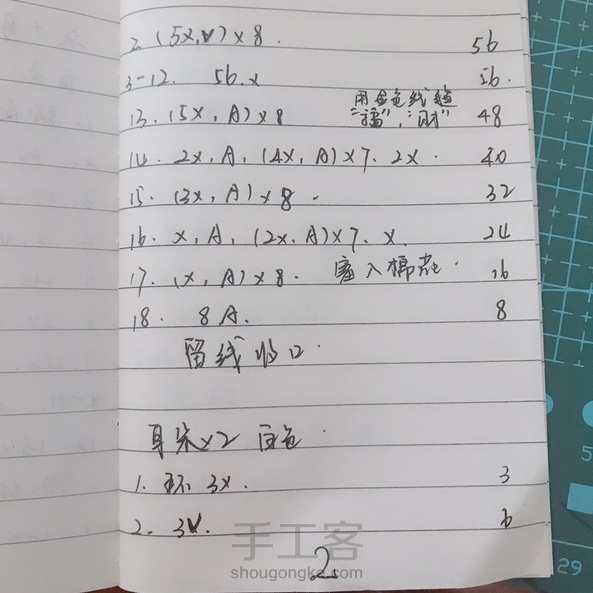 2. (5X, V) X 8. 56
3-12. 56.X 56.
13. (5X, A) X 8 用金色线缝 "福", "财" 48
14. 2X, A, (4X, A) X 7. 2X. 40
15. (3X, A) X 8. 32
16. X, A, (2X. A) X 7. X. 24
17. (X, A) X 8. 塞入棉花. 16
18. 8A. 8
留线收口.
耳朵X2 白色.
1. 环 3X. 3
2. 3V. 6
手工客
shougongke.com
2
29
5